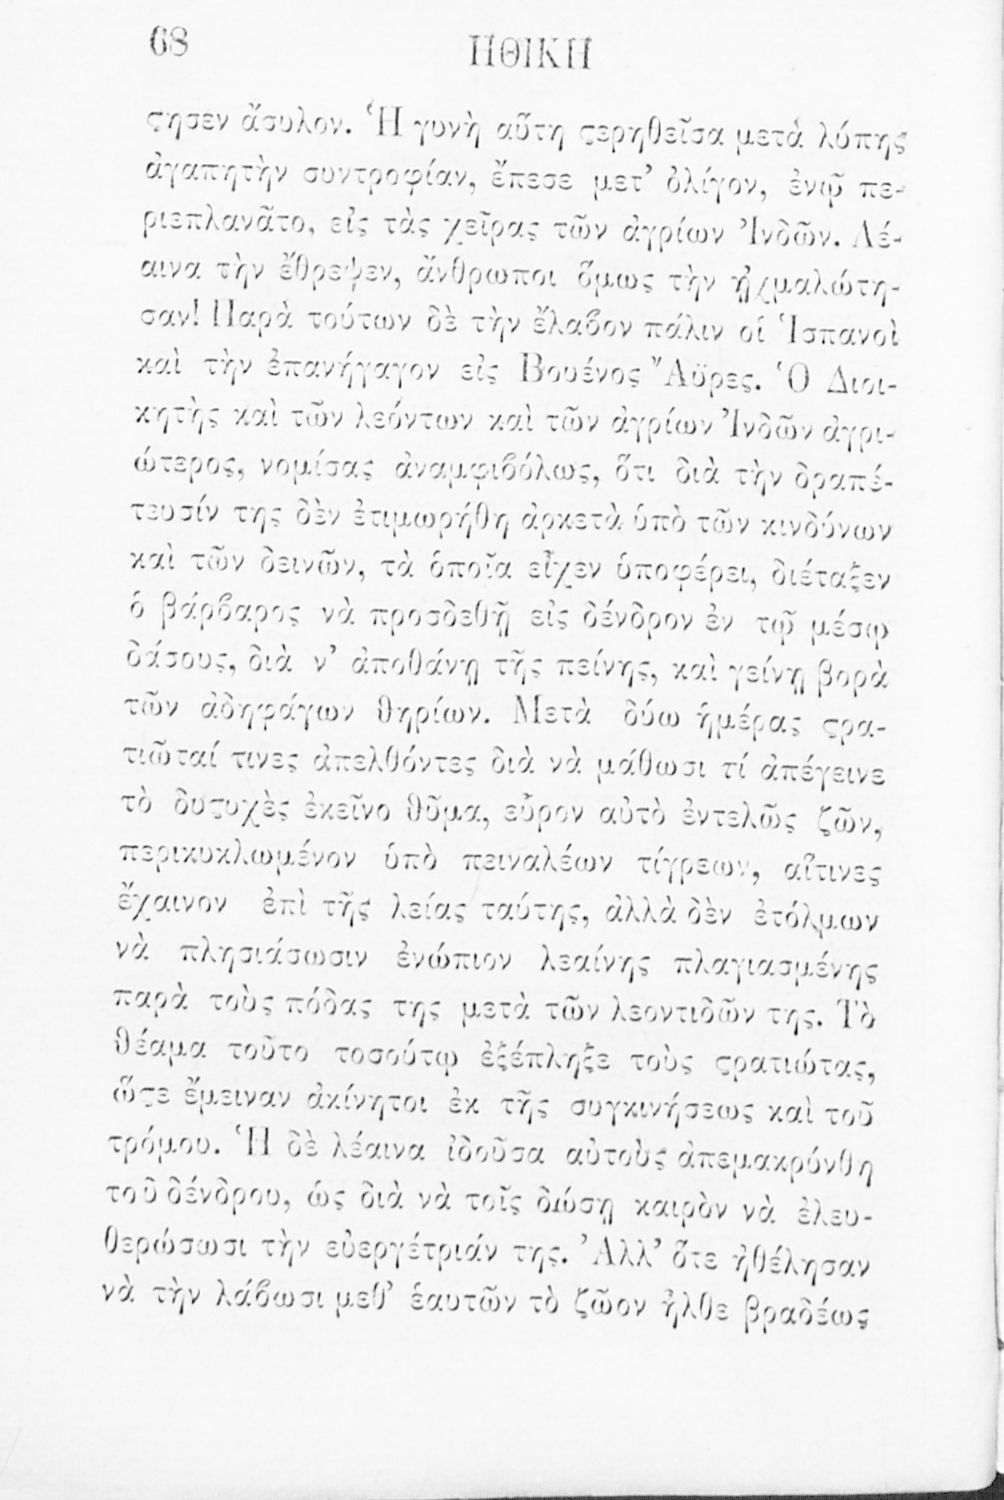 68
ΗΘΙΚΗ
ϛησεν ἄσυλον. Ἡ γυνὴ αὕτη ϛερηθεῖσα μετὰ λύπης
ἀγαπητὴν συντροφίαν, ἔπεσε μετ’ ὀλίγον, ἐνῷ πε-
ριεπλανᾶτο, εἰς τὰς χεῖρας τῶν ἀγρίων Ἰνδῶν. Λέ-
αινα τὴν ἔθρεψεν, ἄνθρωποι ὅμως τὴν ᾐχμαλώτη-
σαν! Παρὰ τούτων δὲ τὴν ἔλαβον πάλιν οἱ Ἱσπανοὶ
καὶ τὴν ἐπανήγαγον εἰς Βουένος Ἄϋρες. Ὁ Διοι-
κητὴς καὶ τῶν λεόντων καὶ τῶν ἀγρίων Ἰνδῶν ἀγρι-
ώτερος, νομίσας ἀναμφιβόλως, ὅτι διὰ τὴν δραπέ-
τευσίν της δὲν ἐτιμωρήθη ἀρκετὰ ὑπὸ τῶν κινδύνων
καὶ τῶν δεινῶν, τὰ ὁποῖα εἶχεν ὑποφέρει, διέταξεν
ὁ βάρβαρος νὰ προσδεθῇ εἰς δένδρον ἐν τῷ μέσῳ
δάσους, διὰ ν’ ἀποθάνῃ τῆς πείνης, καὶ γείνῃ βορὰ
τῶν ἀδηφάγων θηρίων. Μετὰ δύω ἡμέρας ϛρα-
τιῶταί τινες ἀπελθόντες διὰ νὰ μάθωσι τί ἀπέγεινε
τὸ δυϛυχὲς ἐκεῖνο θῦμα, εὗρον αὐτὸ ἐντελῶς ζῶν,
περικυκλωμένον ὑπὸ πειναλέων τίγρεων, αἵτινες
ἔχαινον ἐπὶ τῆς λείας ταύτης, ἀλλὰ δὲν ἐτόλμων
νὰ πλησιάσωσιν ἐνώπιον λεαίνης πλαγιασμένης
παρὰ τοὺς πόδας της μετὰ τῶν λεοντιδῶν της. Τὸ
θέαμα τοῦτο τοσούτῳ ἐξέπληξε τοὺς ϛρατιώτας,
ὥϛε ἔμειναν ἀκίνητοι ἐκ τῆς συγκινήσεως καὶ τοῦ
τρόμου. Ἡ δὲ λέαινα ἰδοῦσα αὐτοὺς ἀπεμακρύνθη
τοῦ δένδρου, ὡς διὰ νὰ τοῖς δώσῃ καιρὸν νὰ ἐλευ-
θερώσωσι τὴν εὐεργέτριάν της. Ἀλλ’ ὅτε ἠθέλησαν
νὰ τὴν λάβωσι μεθ’ ἑαυτῶν τὸ ζῶον ἦλθε βραδέως